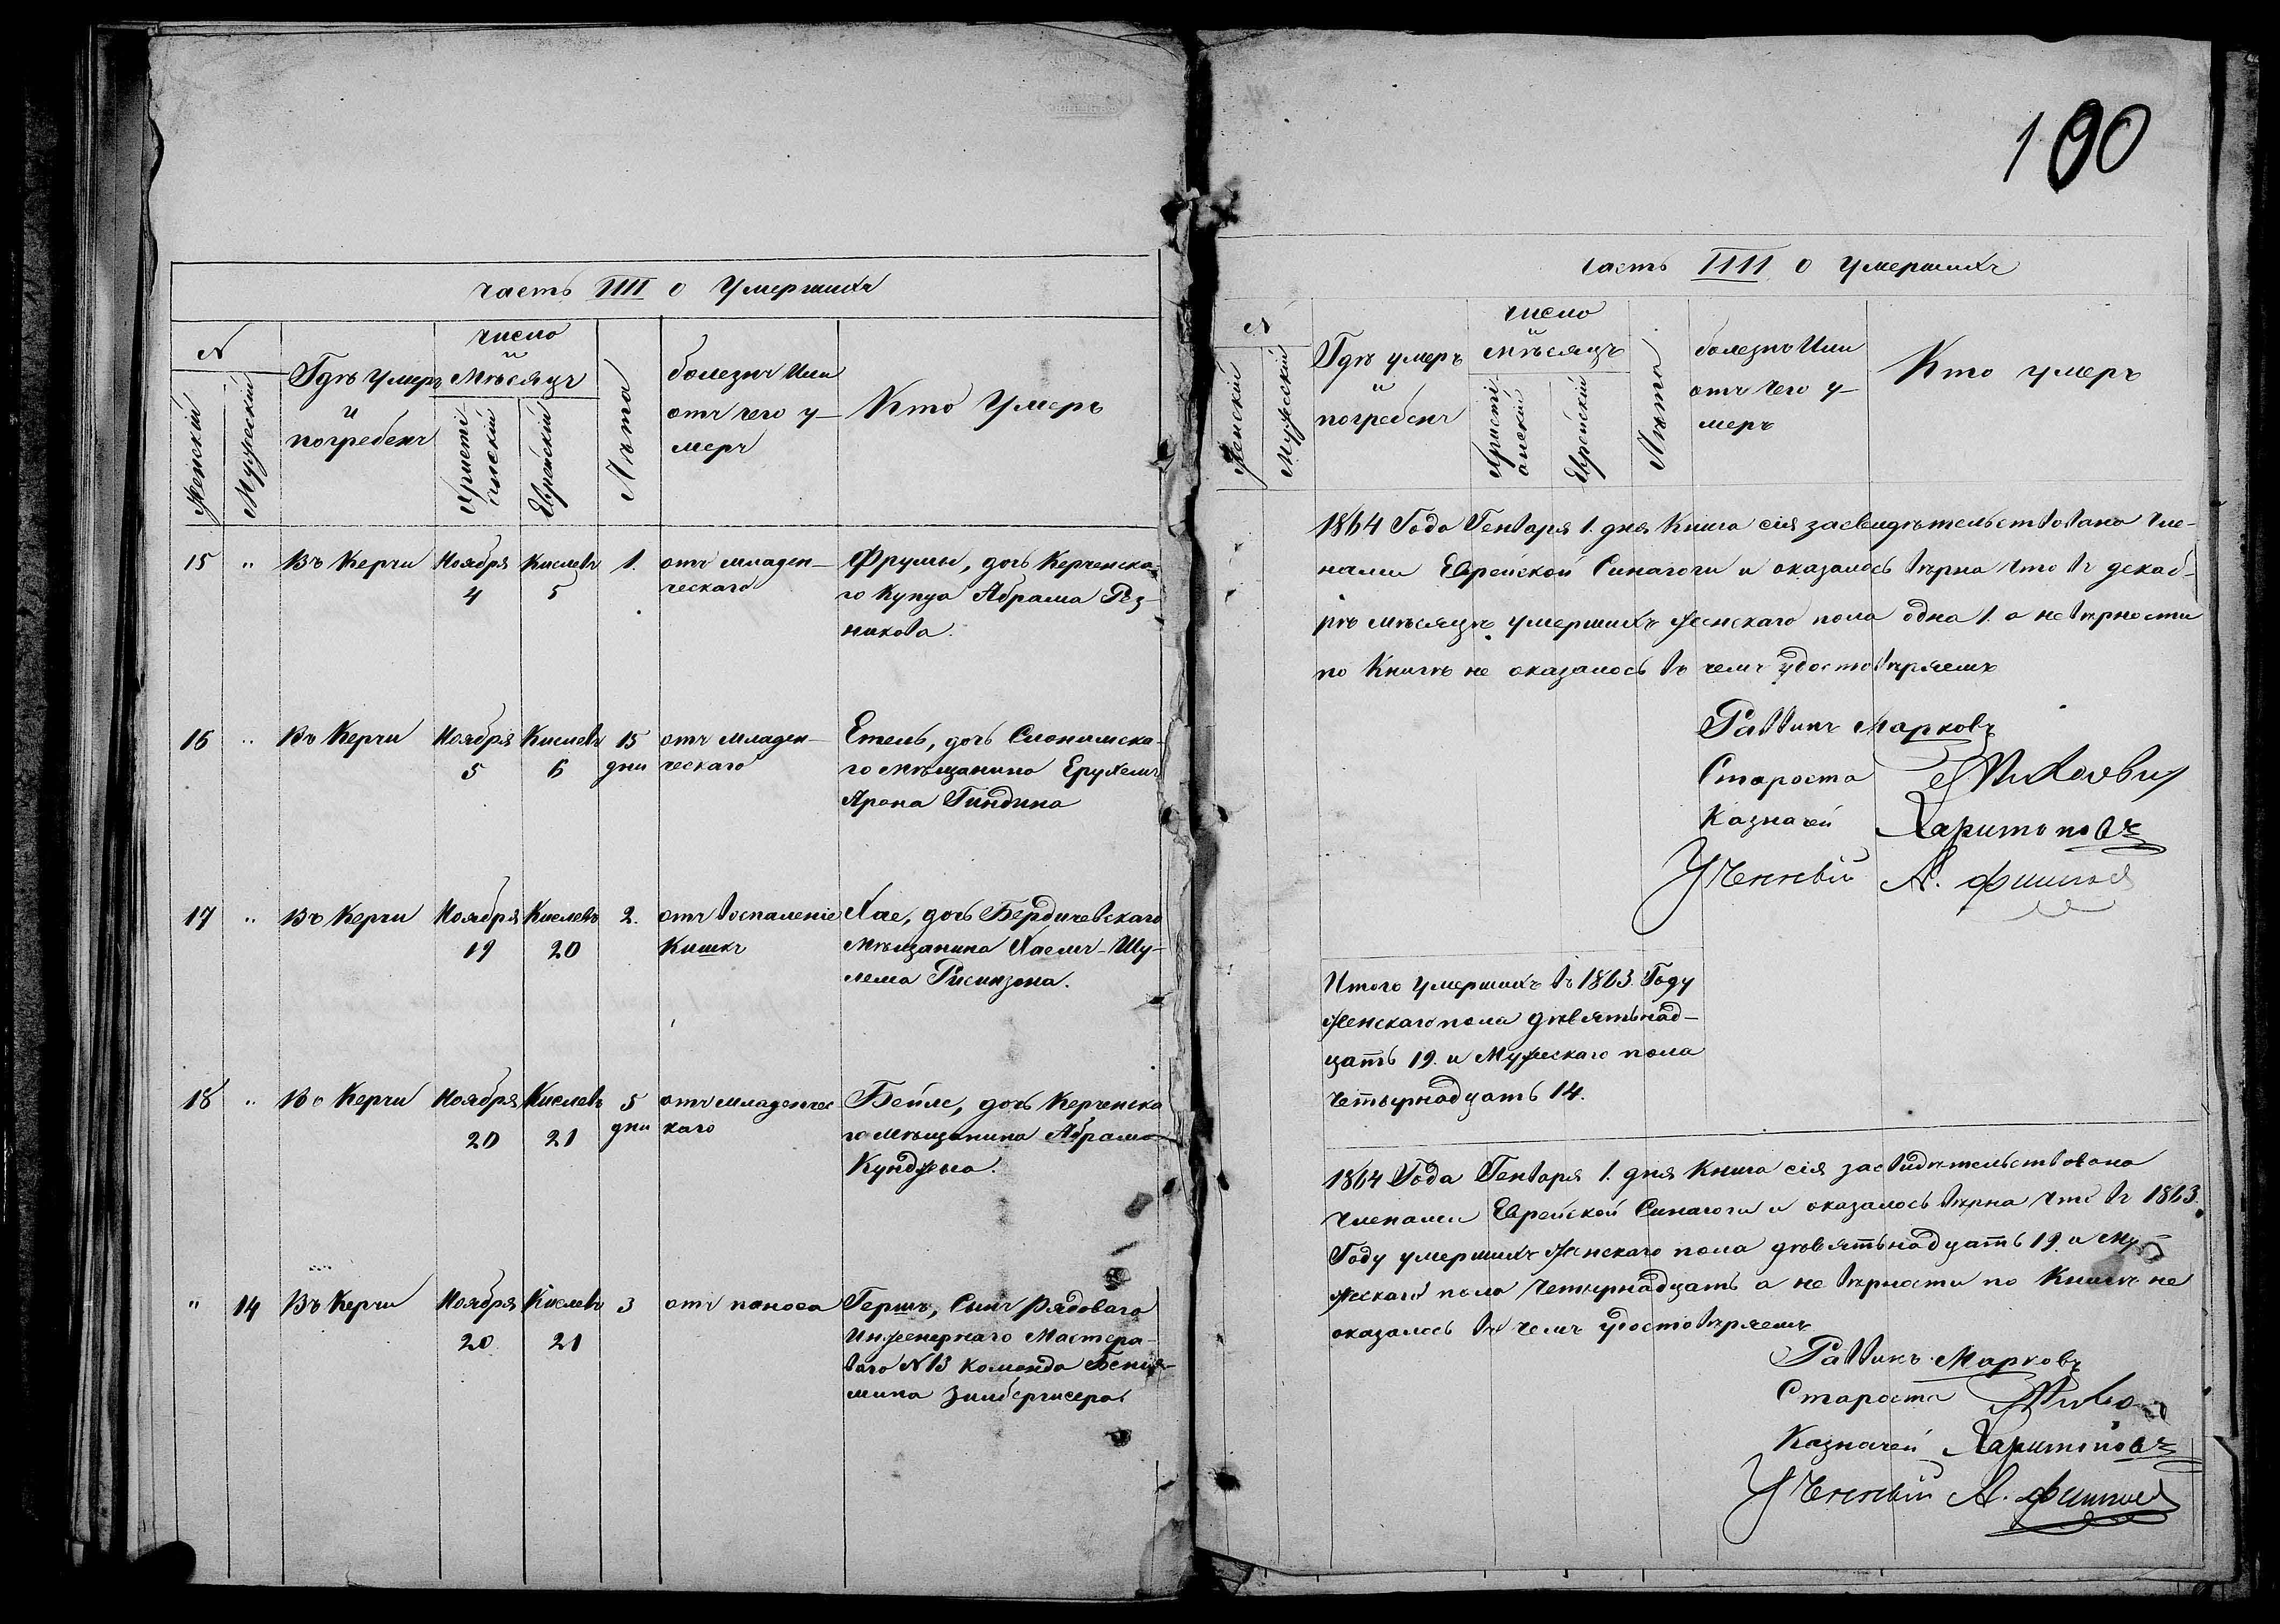 190
часть IIII о Умершихъ
N
Женскій
Мужескій
Гдѣ Умеръ
и
погребенъ
число
и
Мѣсяцъ
Христі
анскій
Еврейскій
Лѣта
болезнь Или
отъ чего у-
меръ
Кто Умеръ
15 " Въ Керчи Ноября 4 Кислевъ 5 1. отъ младен-
ческаго
Фрумы, дочь Керченска-
го Купца Абрама Рѣз
никова.
16 " Въ Керчи Ноября 5 Кислевъ 6 15 дни отъ младен-
ческаго
Етель, дочь Слонимска-
го мѣщанина Ерухемъ
Арона Гиндина
17 " Въ Керчи Ноября 19 Кислевъ 20 2. отъ воспаленіе
Кишкъ
Хае, дочь Бердичевскаго
Мѣщанина Хаемъ-Шу-
лема
18 " Въ Керчи Ноября 20 Кислевъ 21 5 дни отъ младенчес
каго
Бейле, дочь Керченска
го мѣщанина Абрама
" 14 Въ Керчи Ноября 20 Кислевъ 21 3 отъ поноса
Гершъ, Сынъ рядоваго
Инженернаго Мастера-
ваго N 13 команда Бенія-
мина
часть IIII о умершихъ
N
Женскій
Мужескій
Гдѣ умеръ
и
погребенъ
число
и
мѣсяцъ
Христі
анскій
Еврейскій
Лѣта
болезнь Или
отъ чего у-
меръ
Кто умеръ
1864 Года Генваря 1. дня Книга сія засвидѣтельствована чле-
нами Еврейской Синагоги и оказалось вѣрна что въ декаб-
рѣ мѣсяцѣ умершихъ женскаго пола одна 1. а не вѣрности
по Книгѣ не оказалось въ чемъ удостовѣряемъ
Раввинъ Марковъ
Староста
Казначей Харитоновъ
Ученный А.
Итого умершихъ въ 1863. Году
Женскаго пола дѣвятьнад-
цать 19. и Мужескаго пола
четырнадцать 14.
1864 Года Генваря 1. дня Книга сія засвидѣтельствована
членами Еврейской Синагоги и оказалось вѣрна что въ 1863.
Году умершихъ Женскаго пола дѣвятьнадцать 19. и му-
жескаго пола четырнадцать а не вѣрности по Книгѣ не
оказалось въ чемъ удостовѣряемъ
Раввинъ Марковъ
Староста
Казначей Харитоновъ
Ученный А.